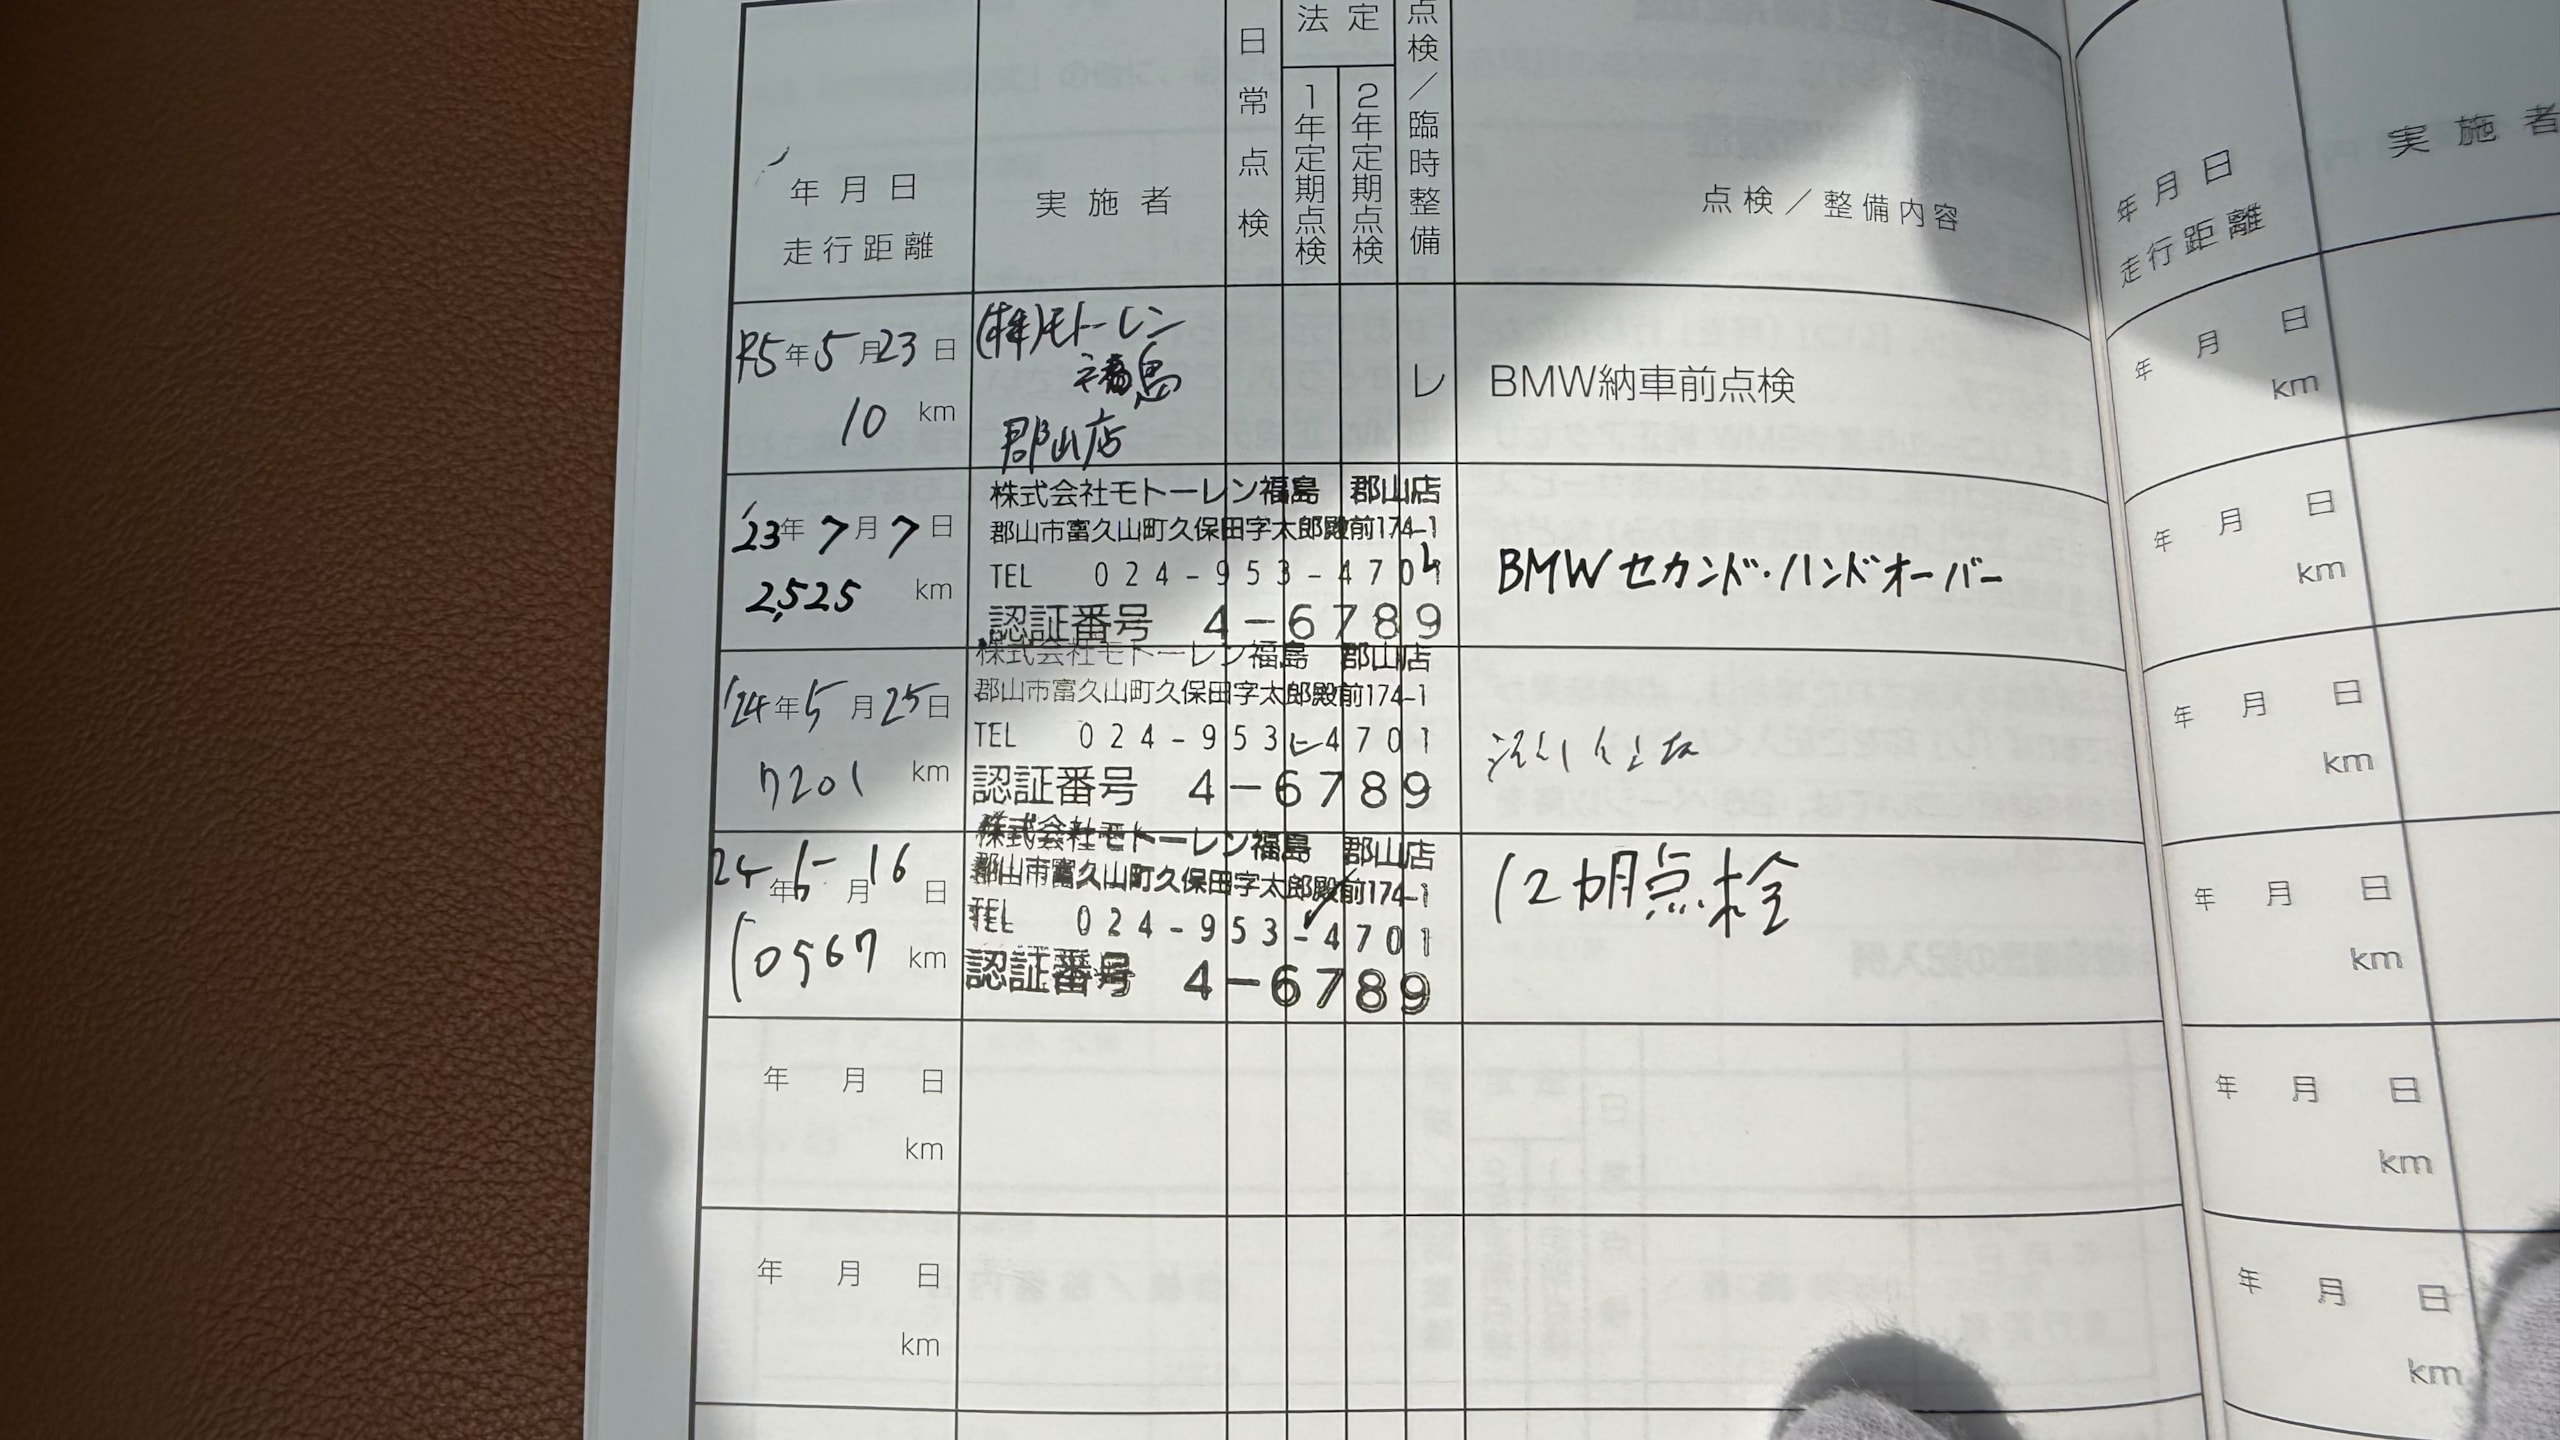 年月日
走行距離
実施者
日常点検
法定
1年定期点検
2年定期点検
点検/臨時整備
点検/整備内容
R5年5月23日
10 km
(株)モトーレン
福島
郡山店
レ
BMW納車前点検
'23年7月7日
2,525 km
株式会社モトーレン福島 郡山店
郡山市富久山町久保田字太郎殿前174-1
TEL 024-953-4701
認証番号 4-6789
レ
BMWセカンド・ハンドオーバー
'24年5月25日
7201 km
株式会社モトーレン福島 郡山店
郡山市富久山町久保田字太郎殿前174-1
TEL 024-953-4701
認証番号 4-6789
24年 月16日
10567 km
株式会社モトーレン福島 郡山店
郡山市富久山町久保田字太郎殿前174-1
TEL 024-953-4701
認証番号 4-6789
12カ月点検
年月日
km
年月日
km
年月日
走行距離
実施者
年月日
km
年月日
km
年月日
km
年月日
km
年月日
km
年月日
km